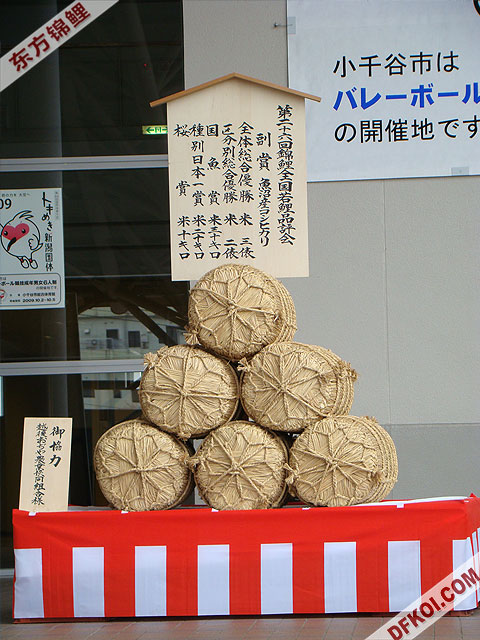 东方锦鲤
小千谷市は
バレーボール
の開催地です
第二十六回錦鯉全国若鯉品評会
副賞 魚沼産コシヒカリ
全体総合優勝 米 三俵
区分別総合優勝 米 二俵
国魚賞 米三十キロ
種別日本一賞 米二十キロ
桜賞 米十キロ
09
トキめき
新潟国体
2009.10.2-10.5
御協力
越後おぢや農業協同組合様
DFKOI.COM